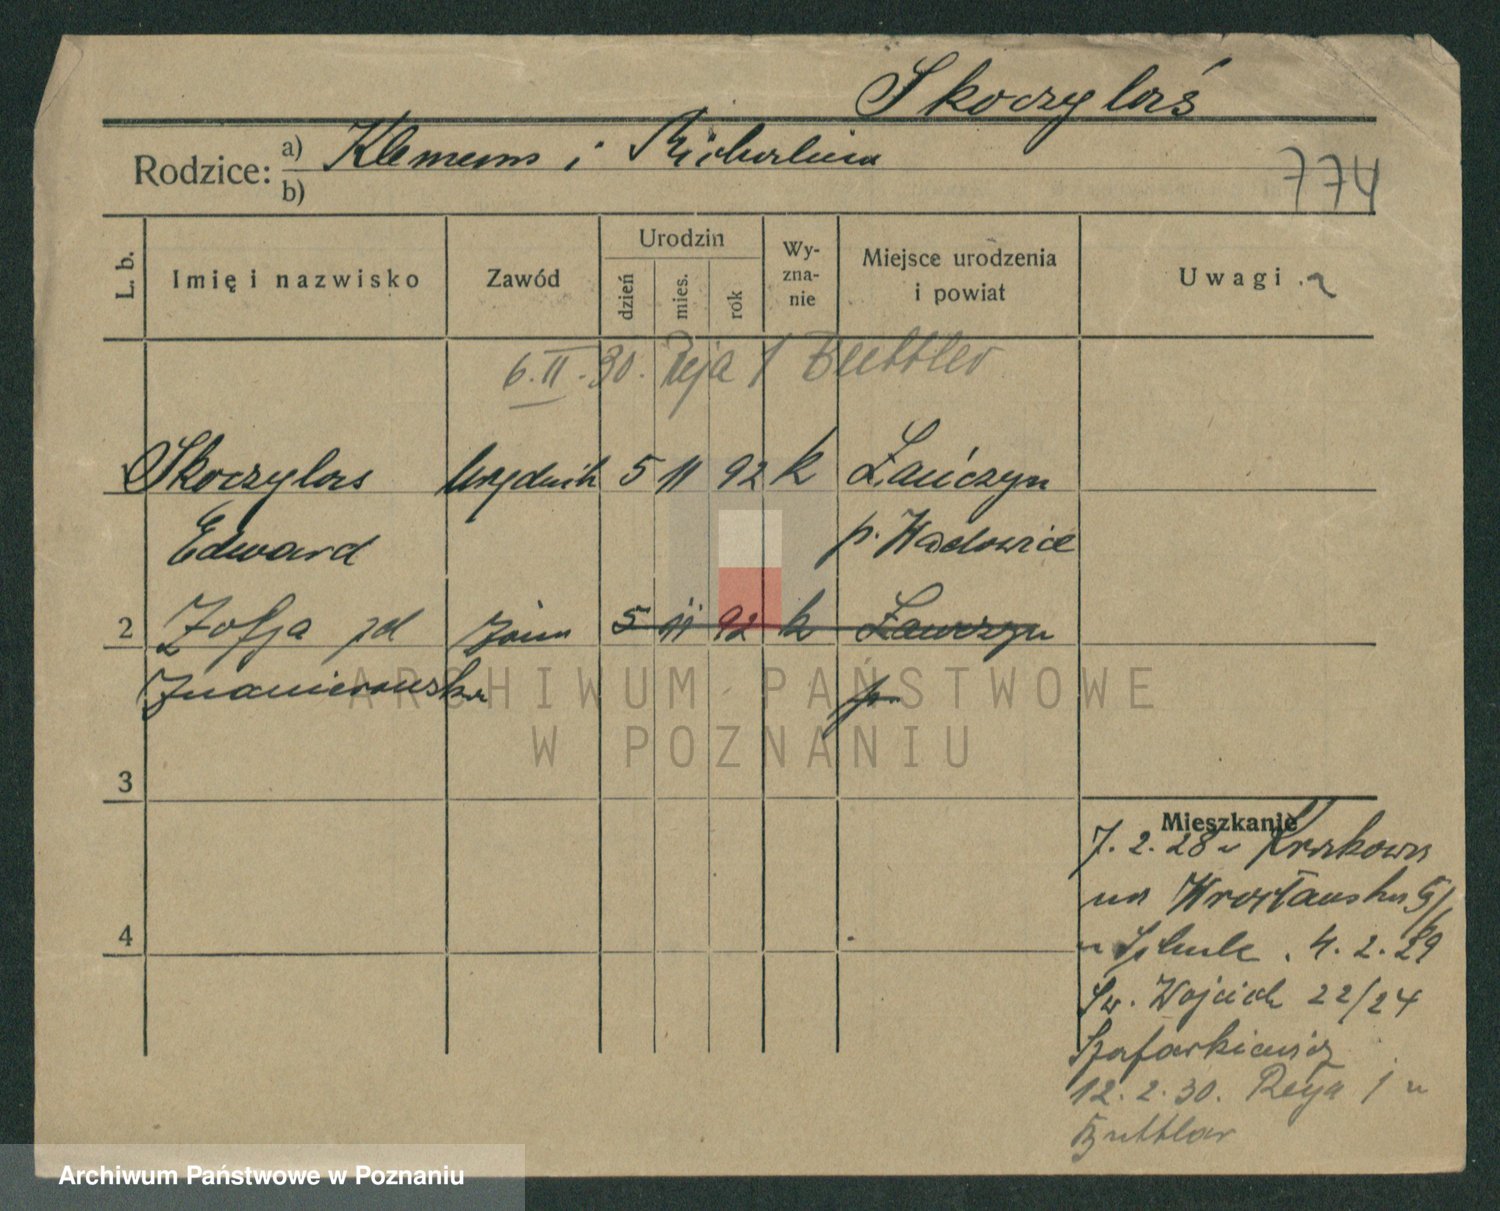 Skoczylaś
Rodzice: a) Klemens i
b)
774
L. b.
Imię i nazwisko
Zawód
Urodzin
dzień
mies.
rok
Wy-
zna-
nie
Miejsce urodzenia
i powiat
Uwagi
6.II.30. Reja 1 Buttler
1 Skoczylas Urzędnik 5 11 92 k Łańczyn
Edward p. Wadowice
2 Zofja zd żona 5 11 92 k Ławczyn
Znanierowska p.
3
4
Mieszkanie
7.2.28 u Krakowa
na Wrocławska
u 4.2.29
Św. Wojciech 22/24
Szafarkiewicz
12.2.30. Reja 1 u
Buttlar
ARCHIWUM PAŃSTWOWE
W POZNANIU
Archiwum Państwowe w Poznaniu